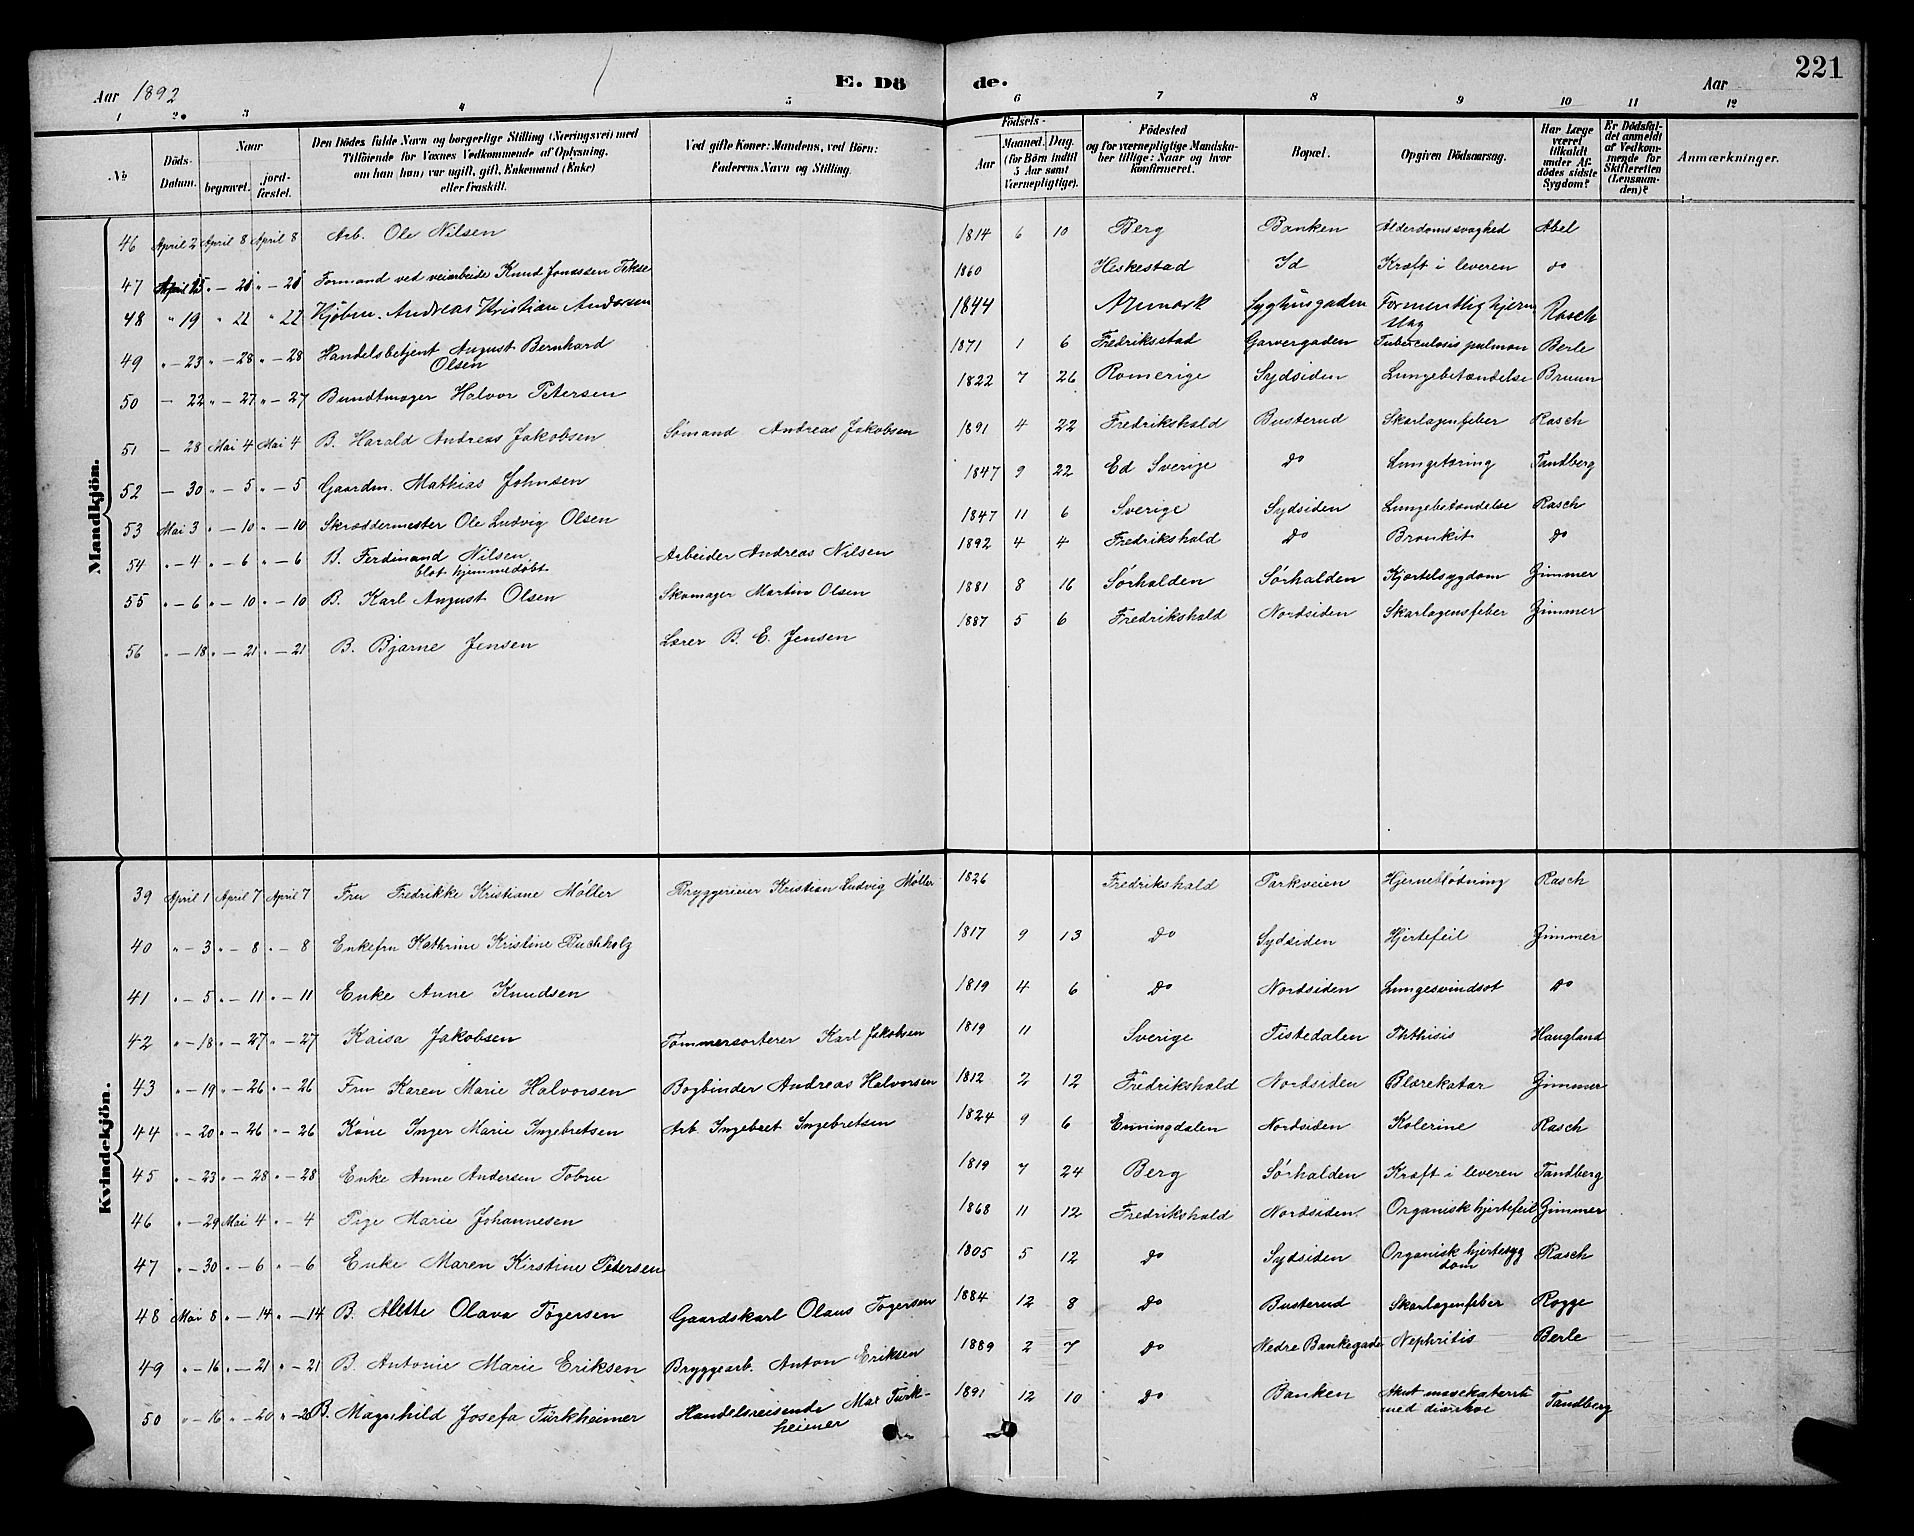 Aar 1892 E. Dö de. Aar 221
1 2. 3 4 5 6 7 8 9 10 11 12
No
Döds-Datum.
Naar
begravet. jord-fæstet.
Den Dödes fulde Navn og borgerlige Stilling (Næringsvei) med
Tilföiende for Voxnes Vedkommende af Oplysning,
om han (hun) var ugift, gift, Enkemand (Enke)
eller fraskilt.
Ved gifte Koner: Mandens, ved Börn:
Faderens Navn og Stilling.
Födsels-
Aar Maaned. Dag.
(for Börn indtil
5 Aar samt
Værnepligtige).
Födested
og for værnepligtige Mandska-
ber tillige: Naar og hvor
konfirmeret.
Bopæl.
Opgiven Dödsaarsag.
Har Læge
været
tilkaldt
under Af-
dødes sidste
Sygdom?
Er Dödsfal-
det anmeldt
af Vedkom-
mende for
Skifteretten
(Lensman-
den)?
Anmærkninger.
Mandkjön.
46 April 2 April 8 April 8 Arb. Ole Nilsen 1814 6 10 Berg Banken Alderdomssvaghed Abel
47 April 15 " - 21 " - 21 Formand ved veiarbeide Knud Jonassen Tekse 1860 Heskestad Id Kræft i leveren do
48 " 19 " 22 " 22 Hjøbm. Andreas Kristian Andersen 1844 Aremark Syghusgaden Formentlig hjerneslag Rasch
49 " - 23 " - 28 " - 28 Handelsbetjent August Bernhard Olsen 1871 1 6 Fredriksstad Garvergaden Tuberculosis pulmon Berle
50 - 22 " - 27 " - 27 Bundtmager Halvor Petersen 1822 7 26 Romerige Sydsiden Lungebetændelse Bruun
51 - 28 Mai 4 Mai 4 B. Harald Andreas Jakobsen Sømand Andreas Jakobsen 1891 4 22 Fredrikshald Busterud Skarlagenfeber Rasch
52 - 30 " - 5 " - 5 Gaardm. Mathias Johnsen 1847 9 22 Ed Sverige do Lungetæring Tandberg
53 Mai 3 " - 10 " - 10 Skræddermester Ole Ludvig Olsen 1847 11 6 Sverige Sydsiden Lungebetændelse Rasch
54 " - 4 " - 6 " - 6 B. Ferdinand Nilsen, blot hjemmedøbt Arbeider Andreas Nilsen 1892 4 4 Fredrikshald do Bronkit do
55 " - 6 " - 10 " - 10 B. Karl August Olsen Skomager Martin Olsen 1881 8 16 Sørhalden Sørhalden Kjertelsygdom Zimmer
56 " - 18 " - 21 " - 21 B. Bjarne Jensen Lærer B. E. Jensen 1887 5 6 Fredrikshald Nordsiden Skarlagensfeber Zimmer
Kvindekjön.
39 April 1 April 7 April 7 Fru Fredrikke Kristiane Møller Bryggerieier Kristian Ludvig Møller 1826 Fredrikshald Parkveien Hjerneblødning Rasch
40 " - 3 " - 8 " - 8 Enkefru Kathrine Kristine Buchholz 1817 9 13 do Sydsiden Hjertefeil Zimmer
41 " - 5 " - 11 " - 11 Enke Anne Knudsen 1819 4 6 do Nordsiden Lungesvindsot do
42 " - 18 " - 27 " - 27 Kaisa Jakobsen Tømmersorterer Karl Jakobsen 1819 11 Sverige Tistedalen Phthisis Haugland
43 " - 19 " - 26 " - 26 Fru Karen Marie Halvorsen Bogbinder Andreas Halvorsen 1812 2 12 Fredrikshald Nordsiden Blærekatar Zimmer
44 " - 20 " - 26 " - 26 Kone Inger Marie Ingebretsen Arb. Ingebret Ingebretsen 1824 9 6 Enningdalen Nordsiden Kolerine Rasch
45 " - 23 " - 28 " - 28 Enke Anne Andersen Tobru 1819 7 24 Berg Sørhalden Kræft i leveren Tandberg
46 " - 29 Mai 4 " - 4 Pige Marie Johannesen 1868 11 12 Fredrikshald Nordsiden. Organisk hjertefeil Zimmer
47 " - 30 " - 6 " - 6 Enke Maren Kirstine Petersen 1805 5 12 do Sydsiden Organisk hjertesygdom Rasch
48 Mai 8 " - 14 " - 14 B. Alette Olava Tøgersen Gaardskarl Olaus Tøgersen 1884 12 8 do Busterud Skarlagenfeber Rogge
49 " - 16 " - 21 " - 21 B. Antonie Marie Eriksen Bryggearb. Anton Eriksen 1889 2 7 do Nedre Bankegade Nephritis Berle
50 " - 16 " - 20 " - 20 B. Magnhild Josefa Türkheimer Handelsreisende Max Türkheimer 1891 12 10 do Banken Akut med diarrhoe Tandberg